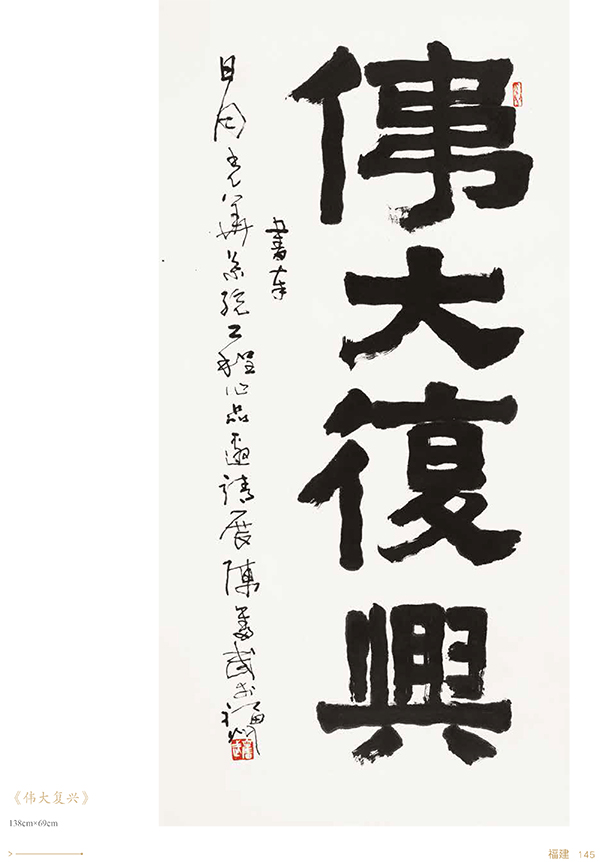 偉大復興
書奉
日月光華系統工程作品邀請展陳奮武於福州
《伟大复兴》
138cm×69cm
福建 145